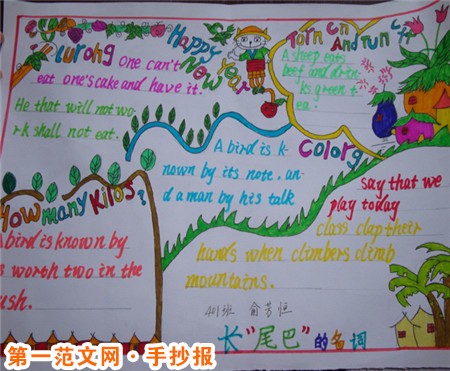 lurong
one can't
eat one's cake and have it.
He that will not wo-
rk shall not eat.
Happy
New Year
Torn on
And run
A sheep eats
beef and drin-
ks green t
ea.
A bird is k-
nown by its note. an-
d a man by his talk
Colorg
say that we
play today
class clap their
hands when climbers climb
mountains.
How many Kilos?
A bird is known by
s worth two in the
ush.
401班 俞芳恒
长"尾巴"的名词
第一范文网·手抄报